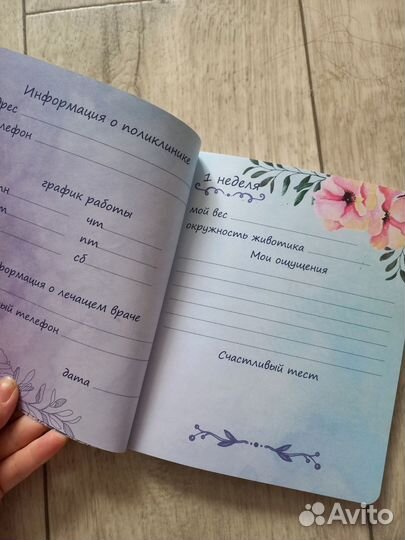 Информация о поликлинике
дрес
елефон
график работы
пн
чт
вт
пт
сб
формация о лечащем враче
ный телефон
дата
1 неделя
мой вес
окружность животика
Мои ощущения
Счастливый тест
Avito